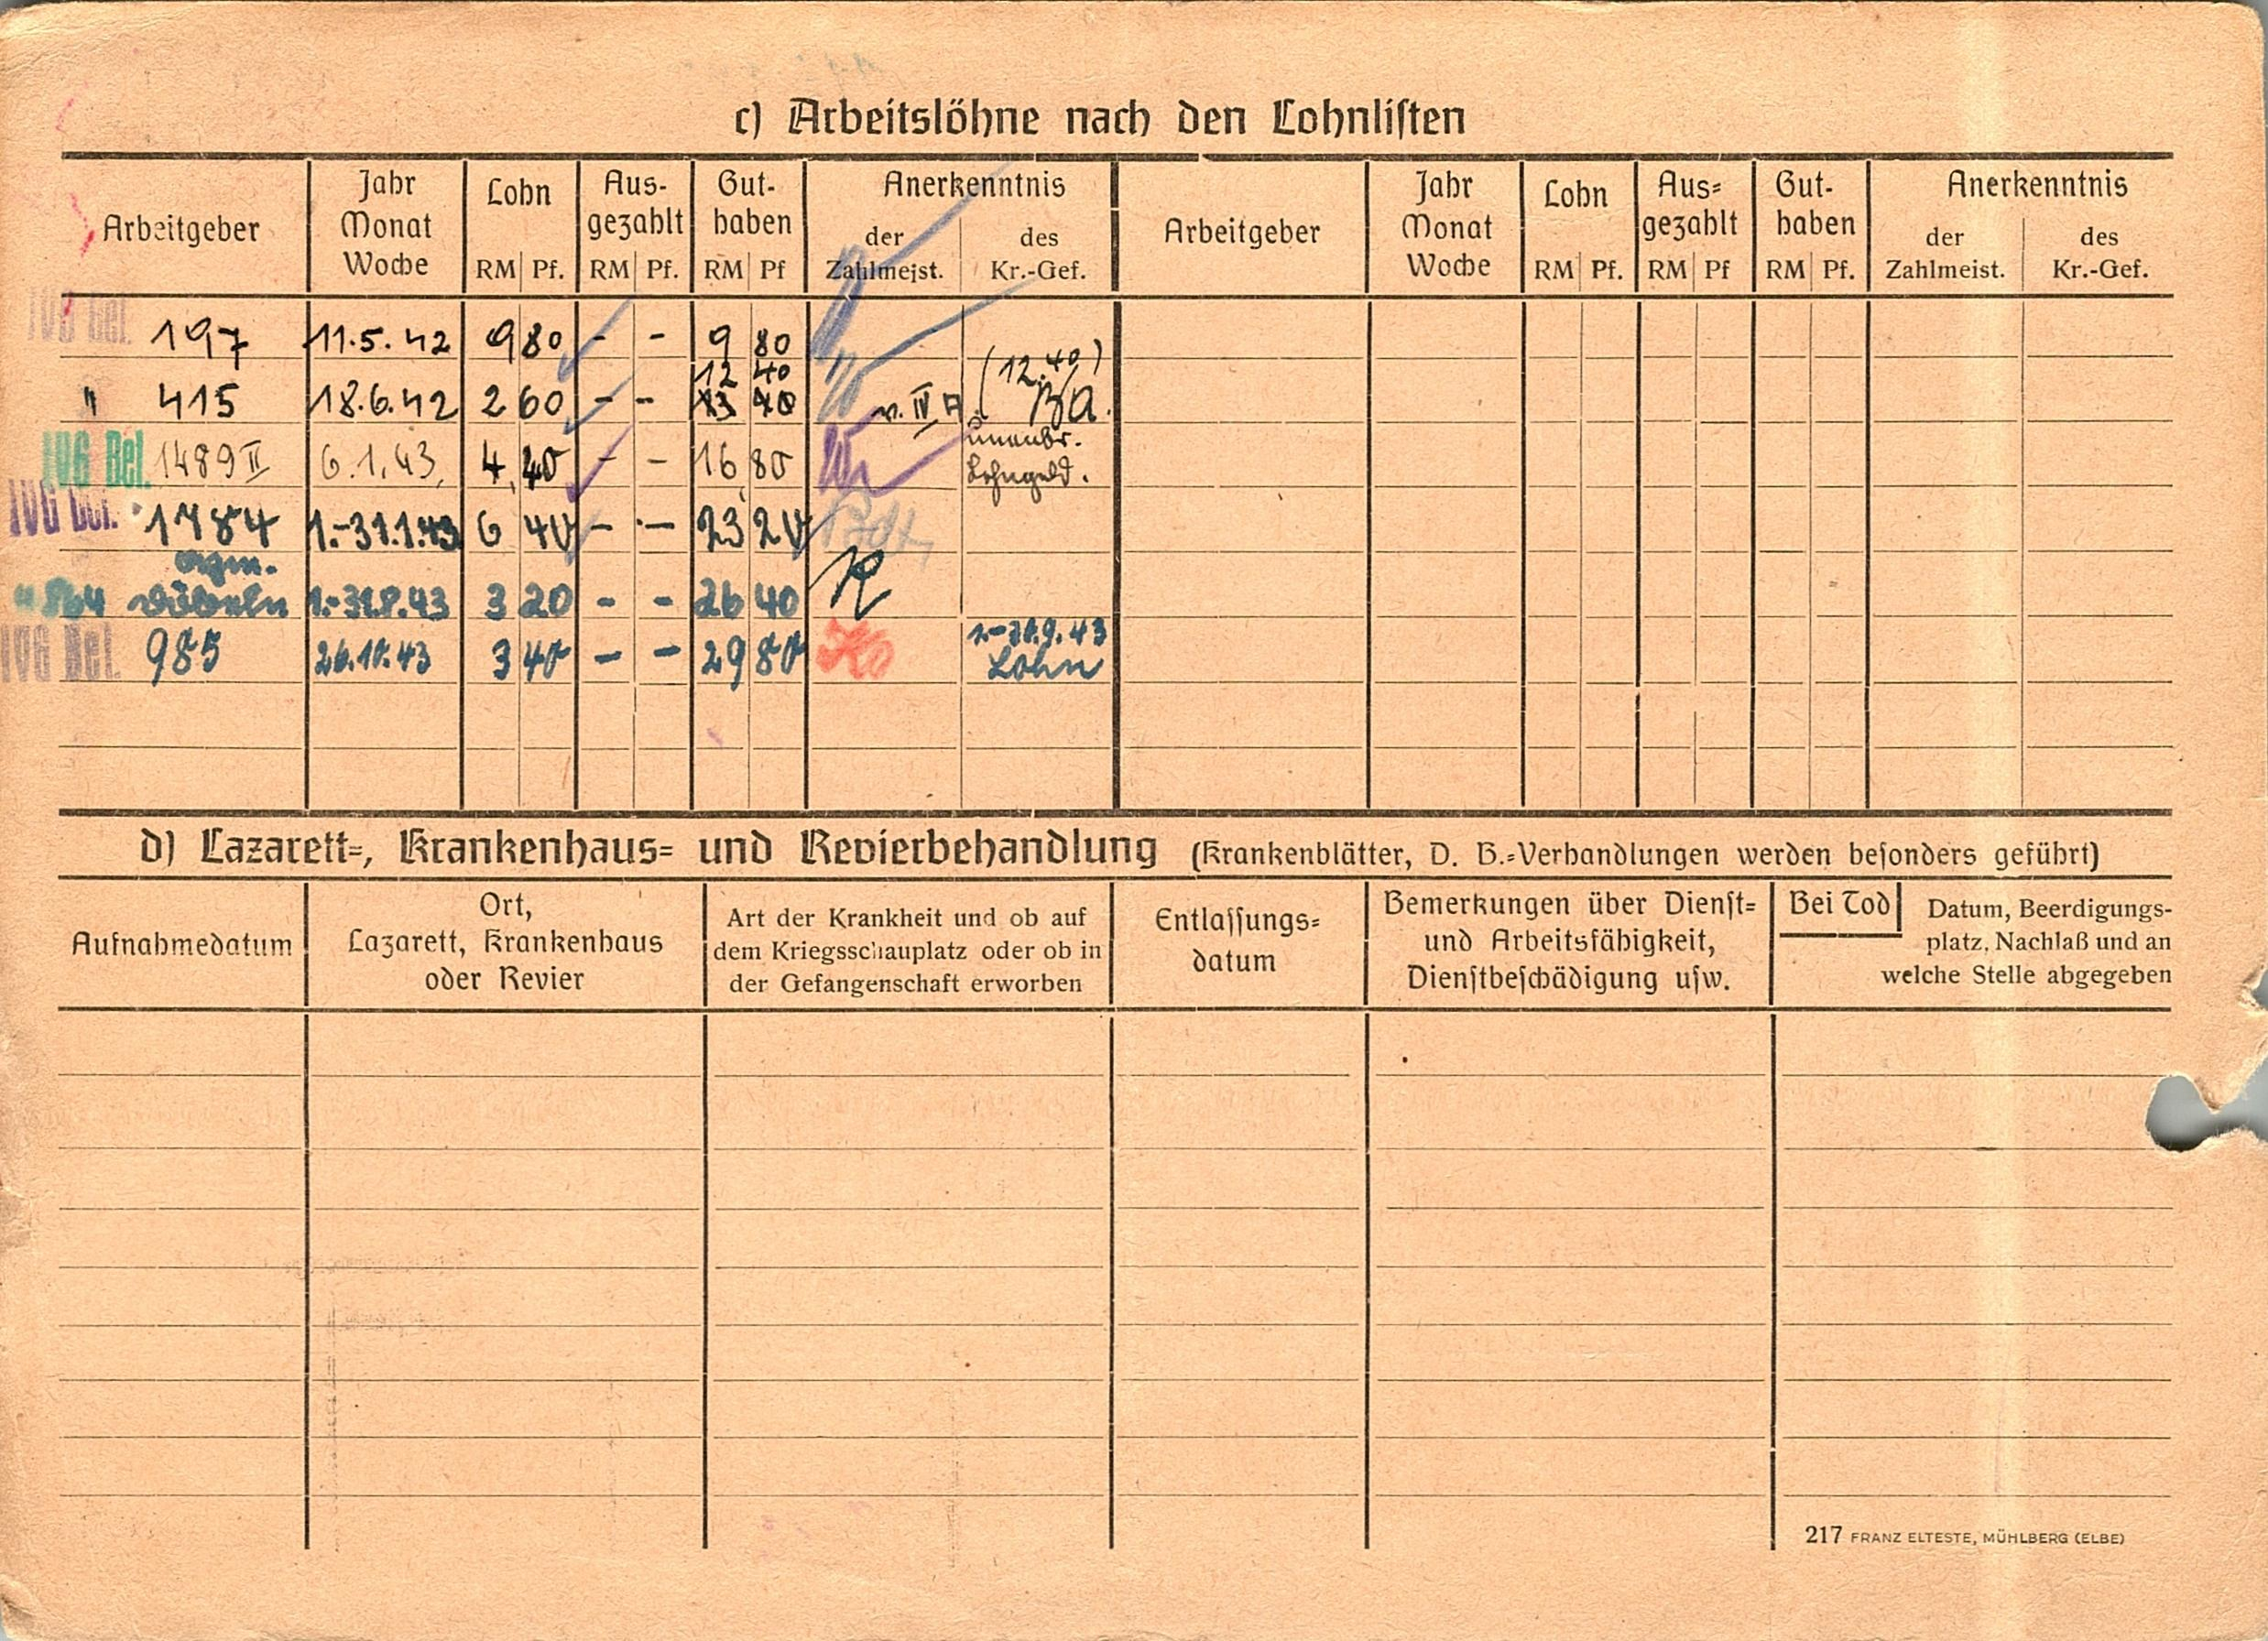 c) Arbeitslöhne nach den Lohnliſten
Arbeitgeber Jahr Monat Woche Lohn RM Pf. Aus-gezahlt RM Pf. Gut-haben RM Pf Anerkenntnis der Zahlmeist. des Kr.-Gef. Arbeitgeber Jahr Monat Woche Lohn RM Pf. Aus-gezahlt RM Pf Gut-haben RM Pf. Anerkenntnis der Zahlmeist. des Kr.-Gef.
IVG Bel. 197 11.5.42 9 80 - - 9 80
12 40 (12.40)
" 415 18.6.42 2 60 - - 13 40 IV
IVG Bel. 1489 II 6.1.43. 4,40 - - 16,80 Lohngeld.
IVG Bel. 1784 1.-31.1.43 6 40 - - 23 20
" 864 1.-31.8.43 3 20 - - 26 40
IVG Bel. 985 26.10.43 3 40 - - 29 80 1.-30.9.43 Lohn
d) Lazarett-, Krankenhaus- und Revierbehandlung (Krankenblätter, D. B.-Verhandlungen werden beſonders geführt)
Aufnahmedatum
Ort,
Lazarett, Krankenhaus
oder Revier
Art der Krankheit und ob auf
dem Kriegsschauplatz oder ob in
der Gefangenschaft erworben
Entlaſſungs-
datum
Bemerkungen über Dienſt-
und Arbeitsfähigkeit,
Dienſtbeſchädigung uſw.
Bei Tod Datum, Beerdigungs-
platz, Nachlaß und an
welche Stelle abgegeben
217 FRANZ ELTESTE, MÜHLBERG (ELBE)